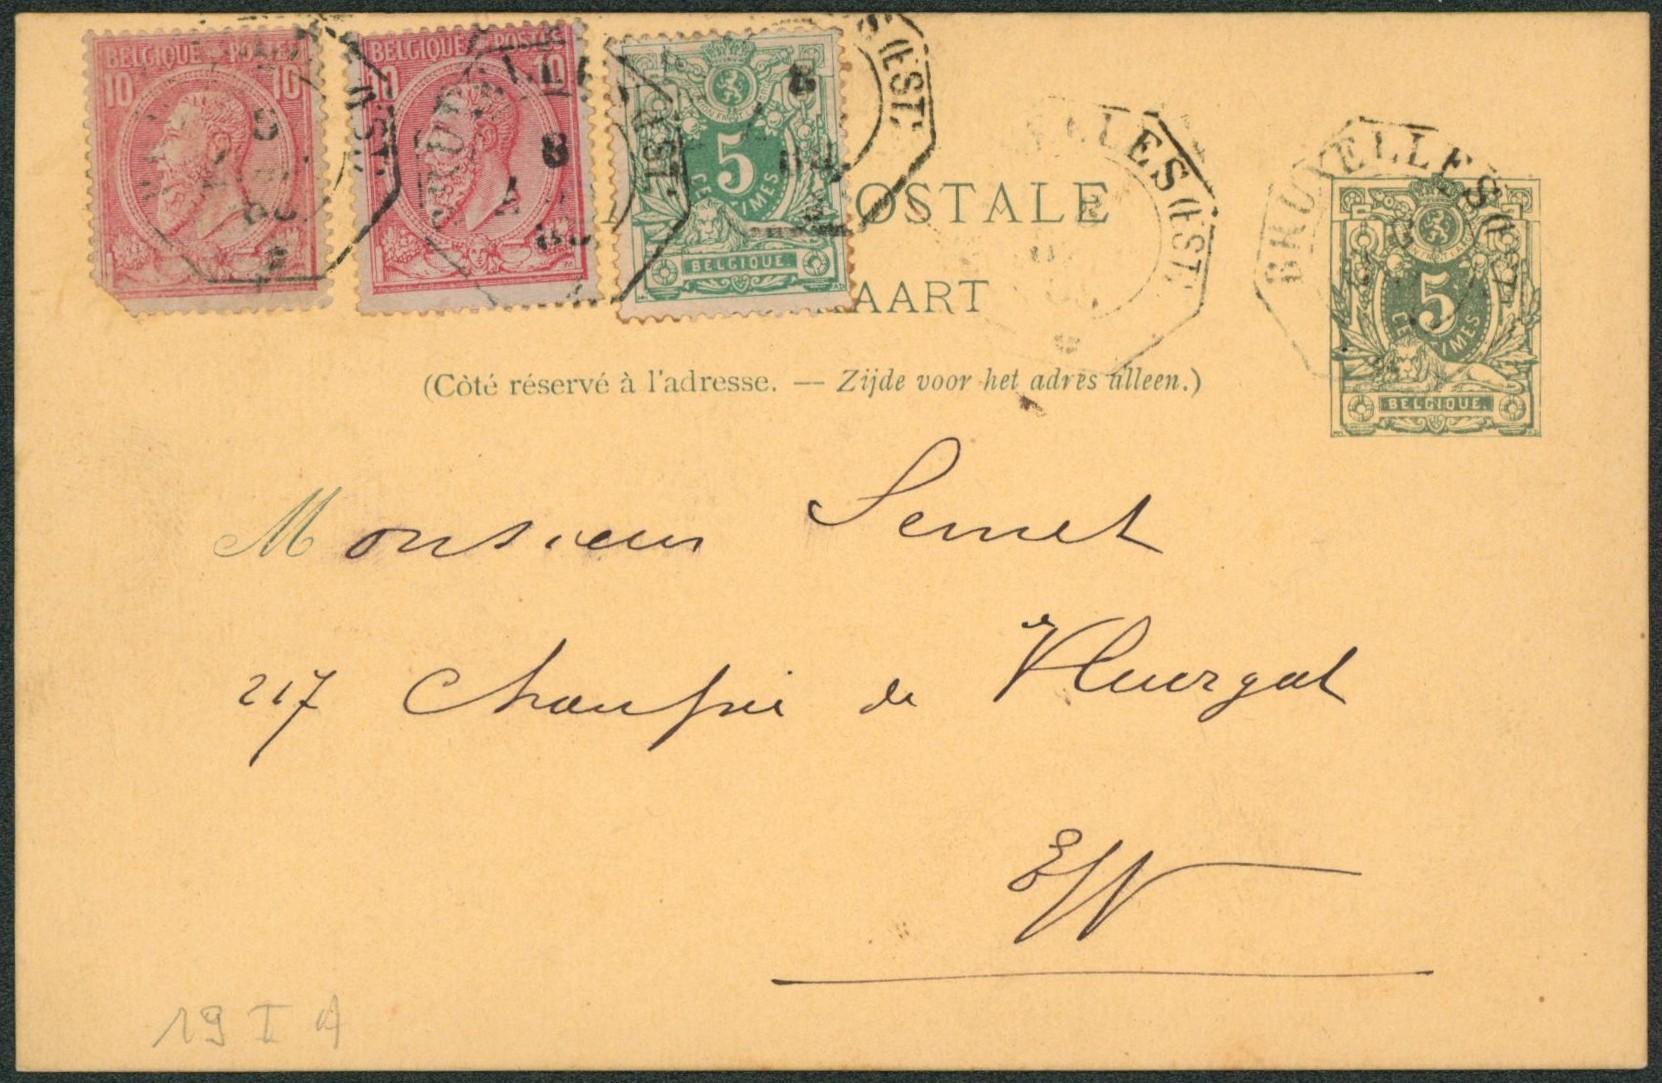 BELGIQUE POSTES
10 10
BELGIQUE POSTES
10 10
5
CENTIMES
BELGIQUE
BRUXELLES (EST)
8
OSTALE
AART
BRUXELLES (EST)
5
CENTIMES
BELGIQUE
(Côté réservé à l'adresse. — Zijde voor het adres alleen.)
Monsieur Semet
217 Chaussée de Vleurgat
E/V
19 I A